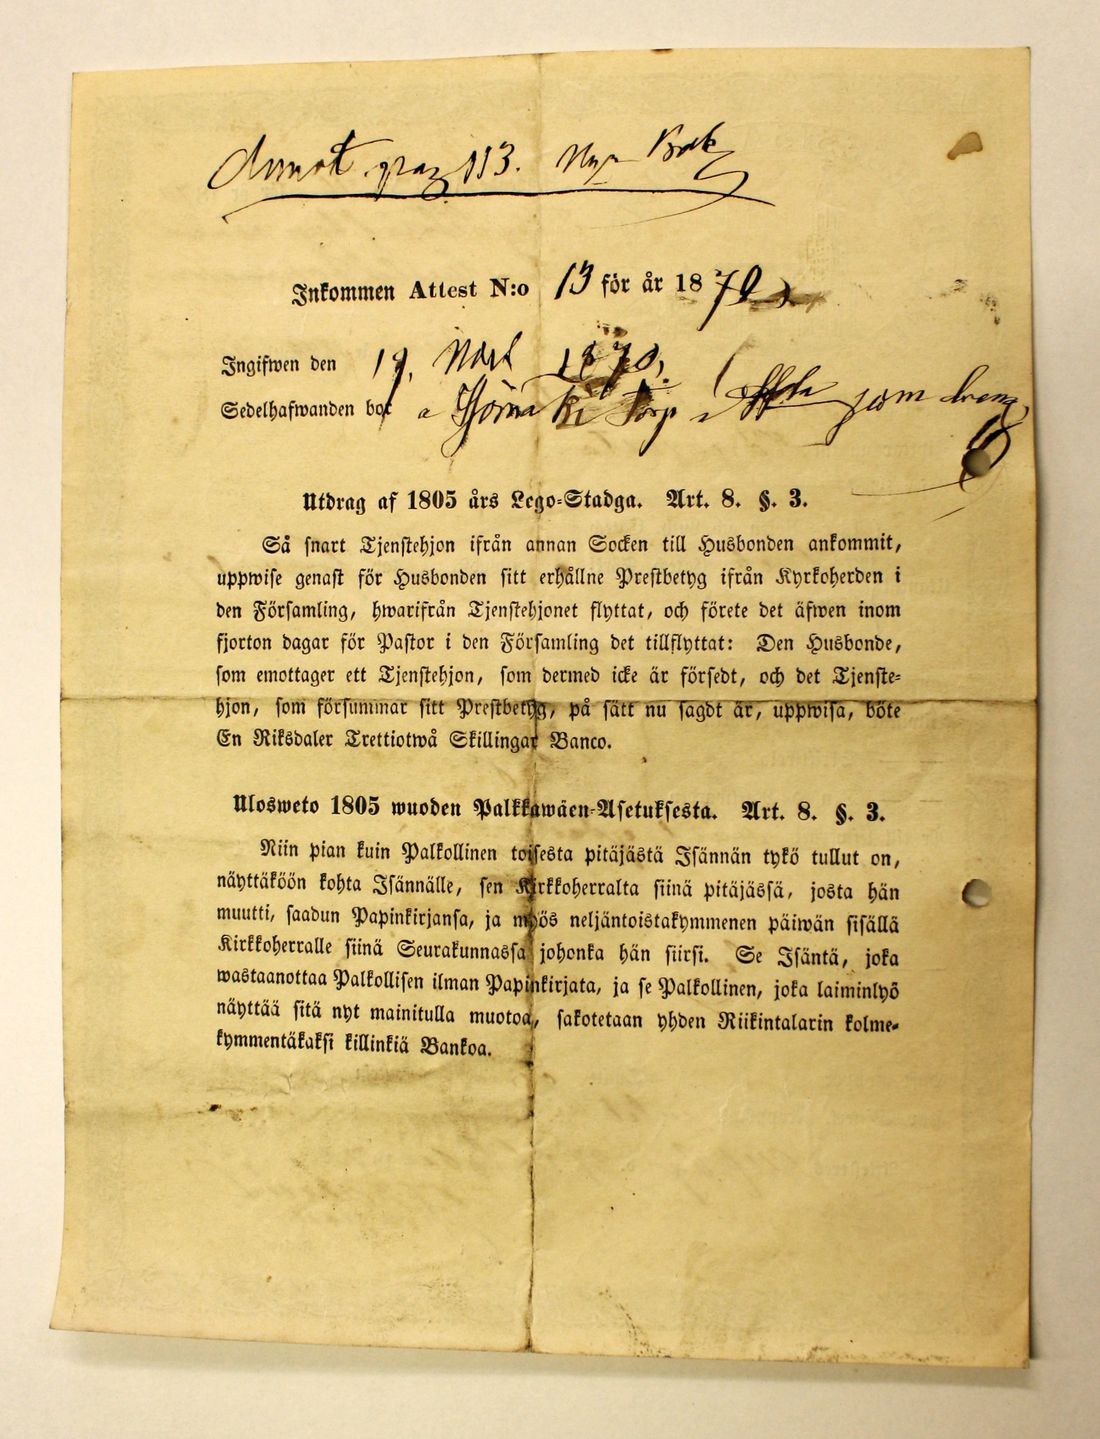 113.
Inkommen Attest N:o 13 för år 1870
Ingifwen den 19. 1870.
Sedelhafwanden bor som
Utdrag af 1805 års Lego-Stadga. Art. 8. §. 3.
Så snart Tjenstehjon ifrån annan Socken till Husbonden ankommit,
uppwise genast för Husbonden sitt erhållne Prestbetyg ifrån Kyrkoherden i
den Församling, hwarifrån Tjenstehjonet flyttat, och förete det äfwen inom
fjorton dagar för Pastor i den Församling det tillflyttat: Den Husbonde,
som emottager ett Tjenstehjon, som dermed icke är försedt, och det Tjenste-
hjon, som försummar sitt Prestbetyg, på sätt nu sagdt är, uppwisa, böte
En Riksdaler Trettiotwå Skillingar Banco.
Ulosweto 1805 wuoden Palkkawäen-Asetuksesta. Art. 8. §. 3.
Niin pian kuin Palkollinen toisesta pitäjästä Isännän tykö tullut on,
näyttäköön kohta Isännälle, sen Kirkkoherralta siinä pitäjässä, josta hän
muutti, saadun Papinkirjansa, ja myös neljäntoistakymmenen päiwän sisällä
Kirkkoherralle siinä Seurakunnassa johonka hän siirsi. Se Isäntä, joka
wastaanottaa Palkollisen ilman Papinkirjata, ja se Palkollinen, joka laiminlyö
näyttää sitä nyt mainitulla muotoa, sakotetaan yhden Riikintalarin kolme-
kymmentäkaksi killinkiä Bankoa.